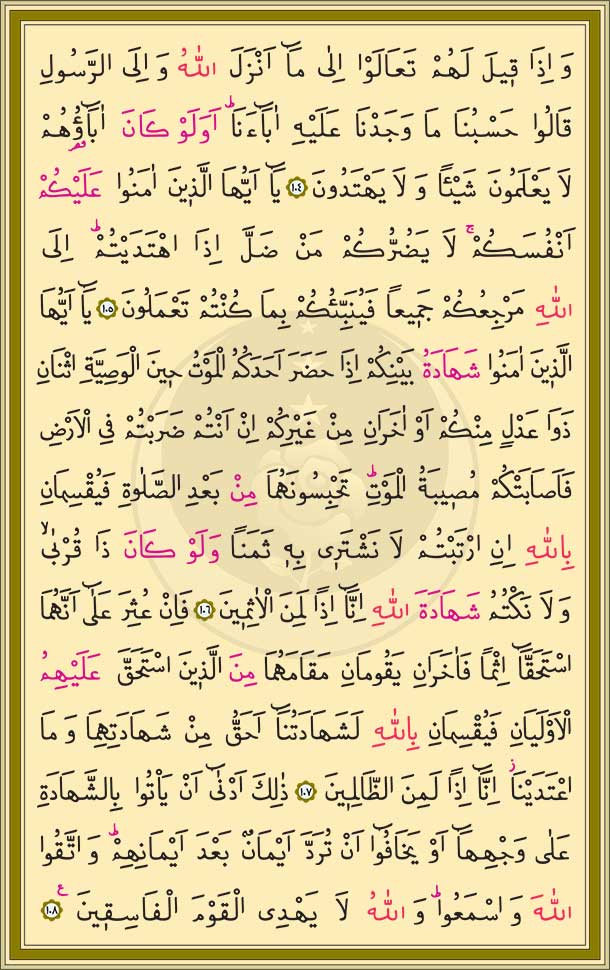 وَاِذَا ق۪يلَ لَهُمْ تَعَالَوْا اِلٰى مَٓا اَنْزَلَ اللّٰهُ وَاِلَى الرَّسُولِ
قَالُوا حَسْبُنَا مَا وَجَدْنَا عَلَيْهِ اٰبَٓاءَنَاۜ اَوَلَوْ كَانَ اٰبَٓاؤُ۬هُمْ
لَا يَعْلَمُونَ شَيْـًٔا وَلَا يَهْتَدُونَ ﴿١٠٤﴾ يَٓا اَيُّهَا الَّذ۪ينَ اٰمَنُوا عَلَيْكُمْ
اَنْفُسَكُمْۚ لَا يَضُرُّكُمْ مَنْ ضَلَّ اِذَا اهْتَدَيْتُمْۜ اِلَى
اللّٰهِ مَرْجِعُكُمْ جَم۪يعاً فَيُنَبِّئُكُمْ بِمَا كُنْتُمْ تَعْمَلُونَ ﴿١٠٥﴾ يَٓا اَيُّهَا
الَّذ۪ينَ اٰمَنُوا شَهَادَةُ بَيْنِكُمْ اِذَا حَضَرَ اَحَدَكُمُ الْمَوْتُ ح۪ينَ الْوَصِيَّةِ اثْنَانِ
ذَوَا عَدْلٍ مِنْكُمْ اَوْ اٰخَرَانِ مِنْ غَيْرِكُمْ اِنْ اَنْتُمْ ضَرَبْتُمْ فِي الْاَرْضِ
فَاَصَابَتْكُمْ مُص۪يبَةُ الْمَوْتِۜ تَحْبِسُونَهُمَا مِنْ بَعْدِ الصَّلٰوةِ فَيُقْسِمَانِ
بِاللّٰهِ اِنِ ارْتَبْتُمْ لَا نَشْتَر۪ي بِه۪ ثَمَناً وَلَوْ كَانَ ذَا قُرْبٰىۙ
وَلَا نَكْتُمُ شَهَادَةَ اللّٰهِ اِنَّٓا اِذاً لَمِنَ الْاٰثِم۪ينَ ﴿١٠٦﴾ فَاِنْ عُثِرَ عَلٰٓى اَنَّهُمَا
اسْتَحَقَّٓا اِثْماً فَاٰخَرَانِ يَقُومَانِ مَقَامَهُمَا مِنَ الَّذ۪ينَ اسْتَحَقَّ عَلَيْهِمُ
الْاَوْلَيَانِ فَيُقْسِمَانِ بِاللّٰهِ لَشَهَادَتُنَٓا اَحَقُّ مِنْ شَهَادَتِهِمَا وَمَا
اعْتَدَيْنَاۘ اِنَّٓا اِذاً لَمِنَ الظَّالِم۪ينَ ﴿١٠٧﴾ ذٰلِكَ اَدْنٰٓى اَنْ يَأْتُوا بِالشَّهَادَةِ
عَلٰى وَجْهِهَٓا اَوْ يَخَافُٓوا اَنْ تُرَدَّ اَيْمَانٌ بَعْدَ اَيْمَانِهِمْۜ وَاتَّقُوا
اللّٰهَ وَاسْمَعُواۜ وَاللّٰهُ لَا يَهْدِي الْقَوْمَ الْفَاسِق۪ينَ۟ ﴿١٠٨﴾